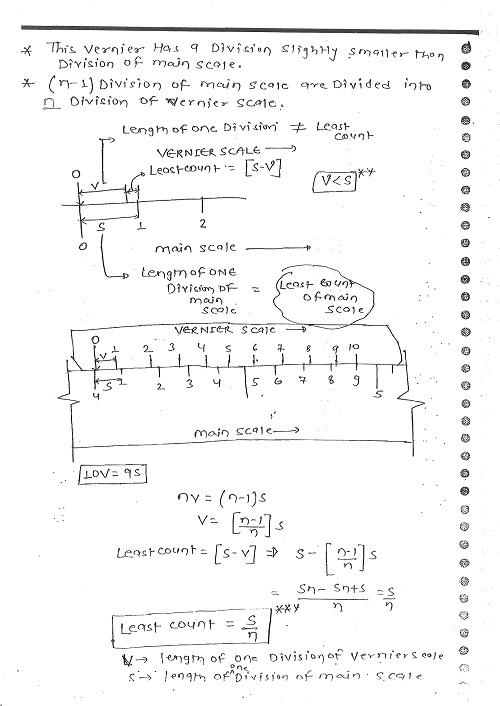 * This vernier Has a Division slightly smaller than
Division of main scale.
* (n-1) Division of main scale are Divided into
n Division of vernier scale.
Length of one Division ≠ Least
count
VERNIER SCALE →
Least count = [S-V]
V<S **
0
V
S
1
2
0
main scale →
Length of ONE
Division of
main
scale
=
Least count
of main
scale
VERNIER scale →
0 1 2 3 4 5 6 7 8 9 10
V
S
4 1 2 3 4 5 6 7 8 9 5
main scale →
10V = 9S
nV = (n-1)S
V = [n-1/n] S
Least count = [S-V] ⇒ S - [n-1/n] S
= Sn - Sn + S/n = S/n
Least count = S/n ***
V → length of one Division of Vernier scale
S → length of one Division of main scale